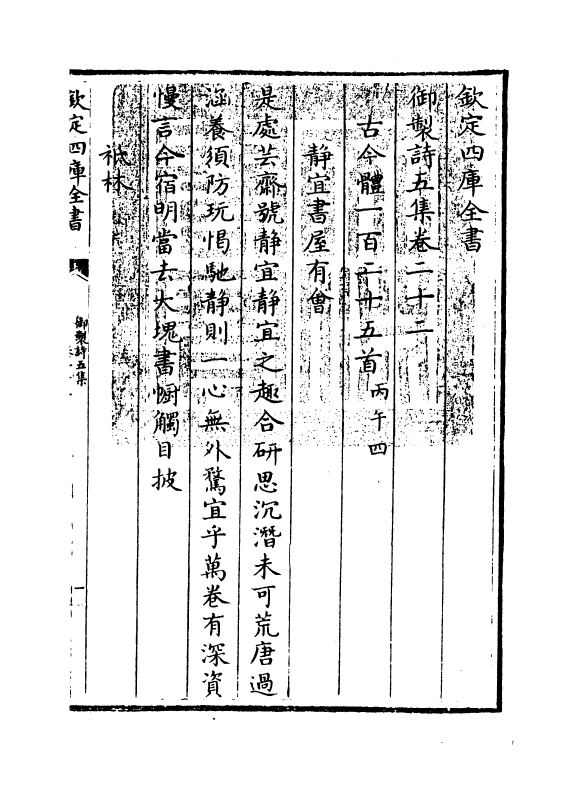 欽定四庫全書
御製詩五集卷二十二
古今體一百二十五首 丙午四
靜宜書屋有會
是處芸齋號静宜静宜之趣合研思沉潛未可荒唐過
涵養須防玩愒馳静則一心無外騖宜乎萬卷有深資
慢言今宿明當去大塊書㡡觸目披
祗林
欽定四庫全書
御製詩五集
一